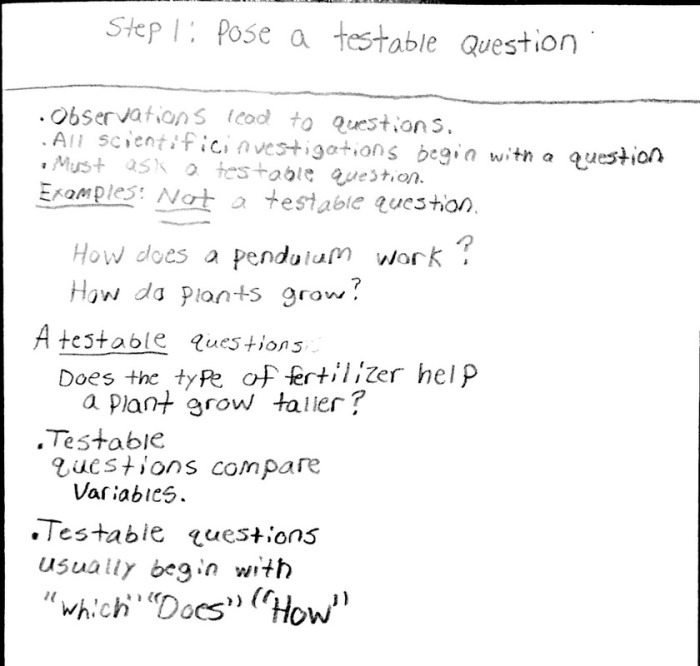 Step 1: Pose a testable Question
• Observations lead to questions.
• All scientific investigations begin with a question
• Must ask a testable question.
Examples: Not a testable question.
How does a pendulum work?
How do plants grow?
A testable questions
Does the type of fertilizer help
a plant grow taller?
• Testable
questions compare
Variables.
• Testable questions
usually begin with
"which" "Does" ("How"